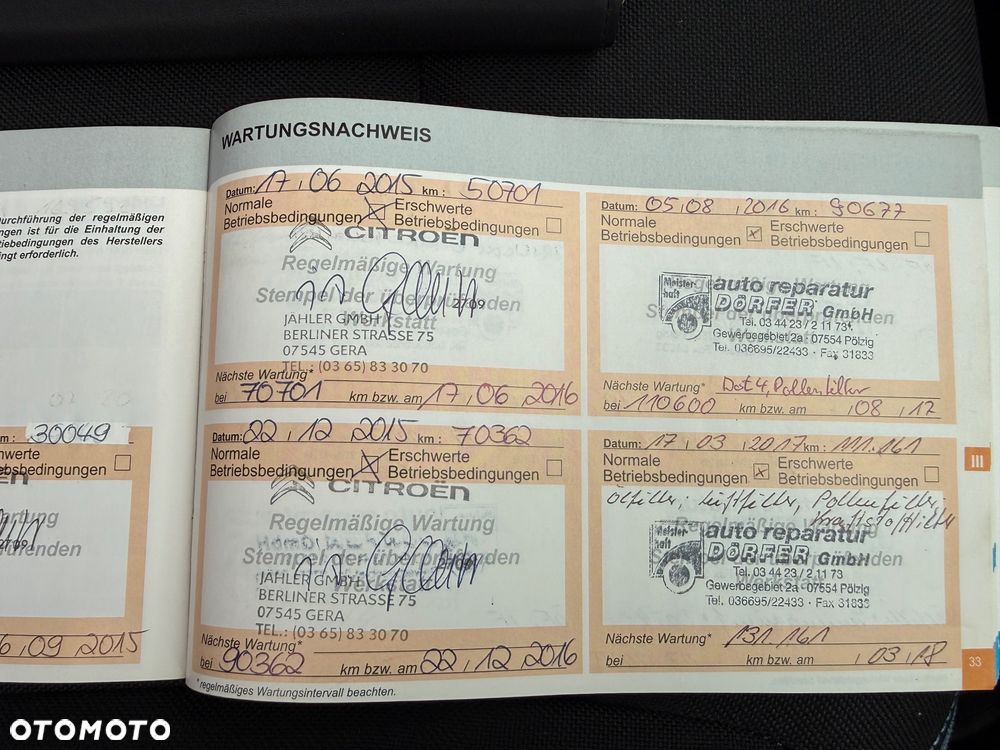 WARTUNGSNACHWEIS
urchführung der regelmäßigen
ngen ist für die Einhaltung der
iebedingungen des Herstellers
ingt erforderlich.
m : 30049
hwerte
ebsbedingungen
artung
üfenden
2709
6 , 09 2015
Datum: 17 , 06 2015 km : 50701
Normale Betriebsbedingungen
Erschwerte Betriebsbedingungen
CITROËN
Regelmäßige Wartung
Stempel der überprüfenden
Werkstatt
2709
JAHLER GMBH
BERLINER STRASSE 75
07545 GERA
TEL.: (03 65) 83 30 70
Nächste Wartung*
bei 70701 km bzw. am 17 , 06 2016
Datum: 22 , 12 2015 km : 70362
Normale Betriebsbedingungen
Erschwerte Betriebsbedingungen
CITROËN
Regelmäßige Wartung
Stempel der überprüfenden
JAHLER GMBH
BERLINER STRASSE 75
07545 GERA
TEL.: (03 65) 83 30 70
Nächste Wartung*
bei 90362 km bzw. am 22 , 12 2016
* regelmäßiges Wartungsintervall beachten.
Datum: 05 , 08 , 2016 km : 90677
Normale Betriebsbedingungen
Erschwerte Betriebsbedingungen
Meister-
haft
auto reparatur
DÖRFER GmbH
Tel. 03 44 23 / 2 11 73
Gewerbegebiet 2a · 07554 Pölzig
Tel. 036695/22433 · Fax 31833
Nächste Wartung* Dot 4, Pollenfilter
bei 110600 km bzw. am , 08 , 17
Datum: 17 , 03 , 2017 km : 111.161
Normale Betriebsbedingungen
Erschwerte Betriebsbedingungen
Ölfilter, Luftfilter, Pollenfilter,
Kraftstofffilter
Meister-
haft
auto reparatur
DÖRFER GmbH
Tel. 03 44 23 / 2 11 73
Gewerbegebiet 2a · 07554 Pölzig
Tel. 036695/22433 · Fax 31833
Nächste Wartung* 131.161
bei km bzw. am , 03 , 18
III
33
OTOMOTO